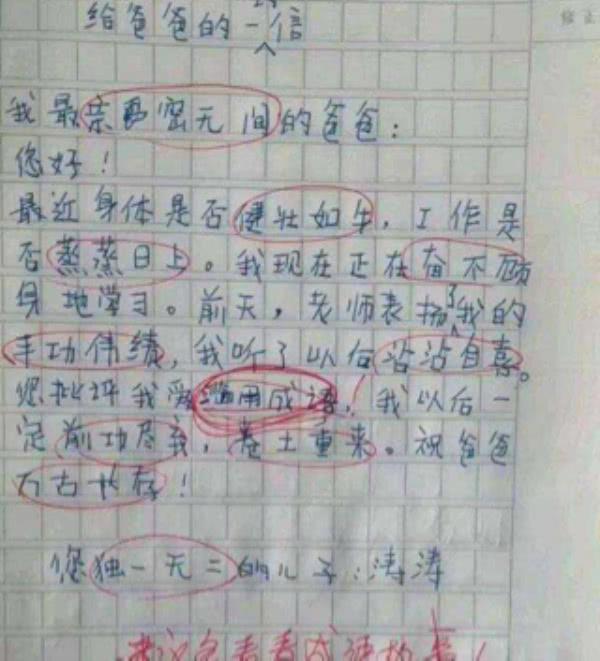 给爸爸的一封信
我最亲密无间的爸爸：
您好！
最近身体是否健壮如牛，工作是
否蒸蒸日上。我现在正在奋不顾
身地学习。前天，老师表扬了我的
丰功伟绩，我听了以后沾沾自喜。
您批评我爱滥用成语，我以后一
定前功尽弃，卷土重来。祝爸爸
万古长存！
您独一无二的儿子：涛涛
建议完看看成语故事！